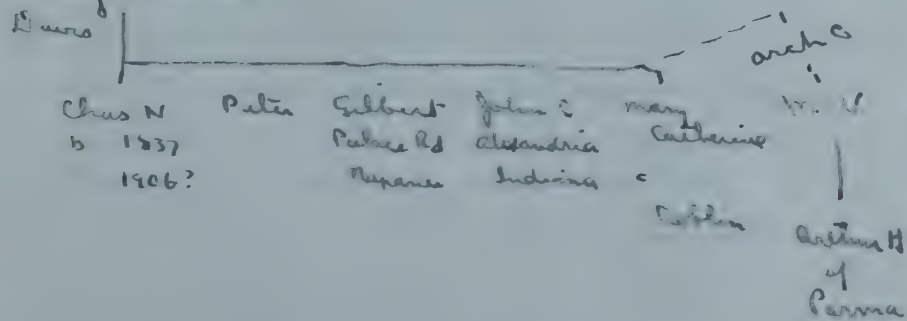 arch C
Chas N Peter Gilbert John C Mary
b 1837 Palace Rd Alexandria Catherine
1906? Napanee Indiana c
Arthur H
of
Parma